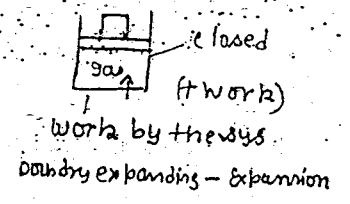 closed
gas
(+ work)
work by the sys
boundry expanding - Expansion